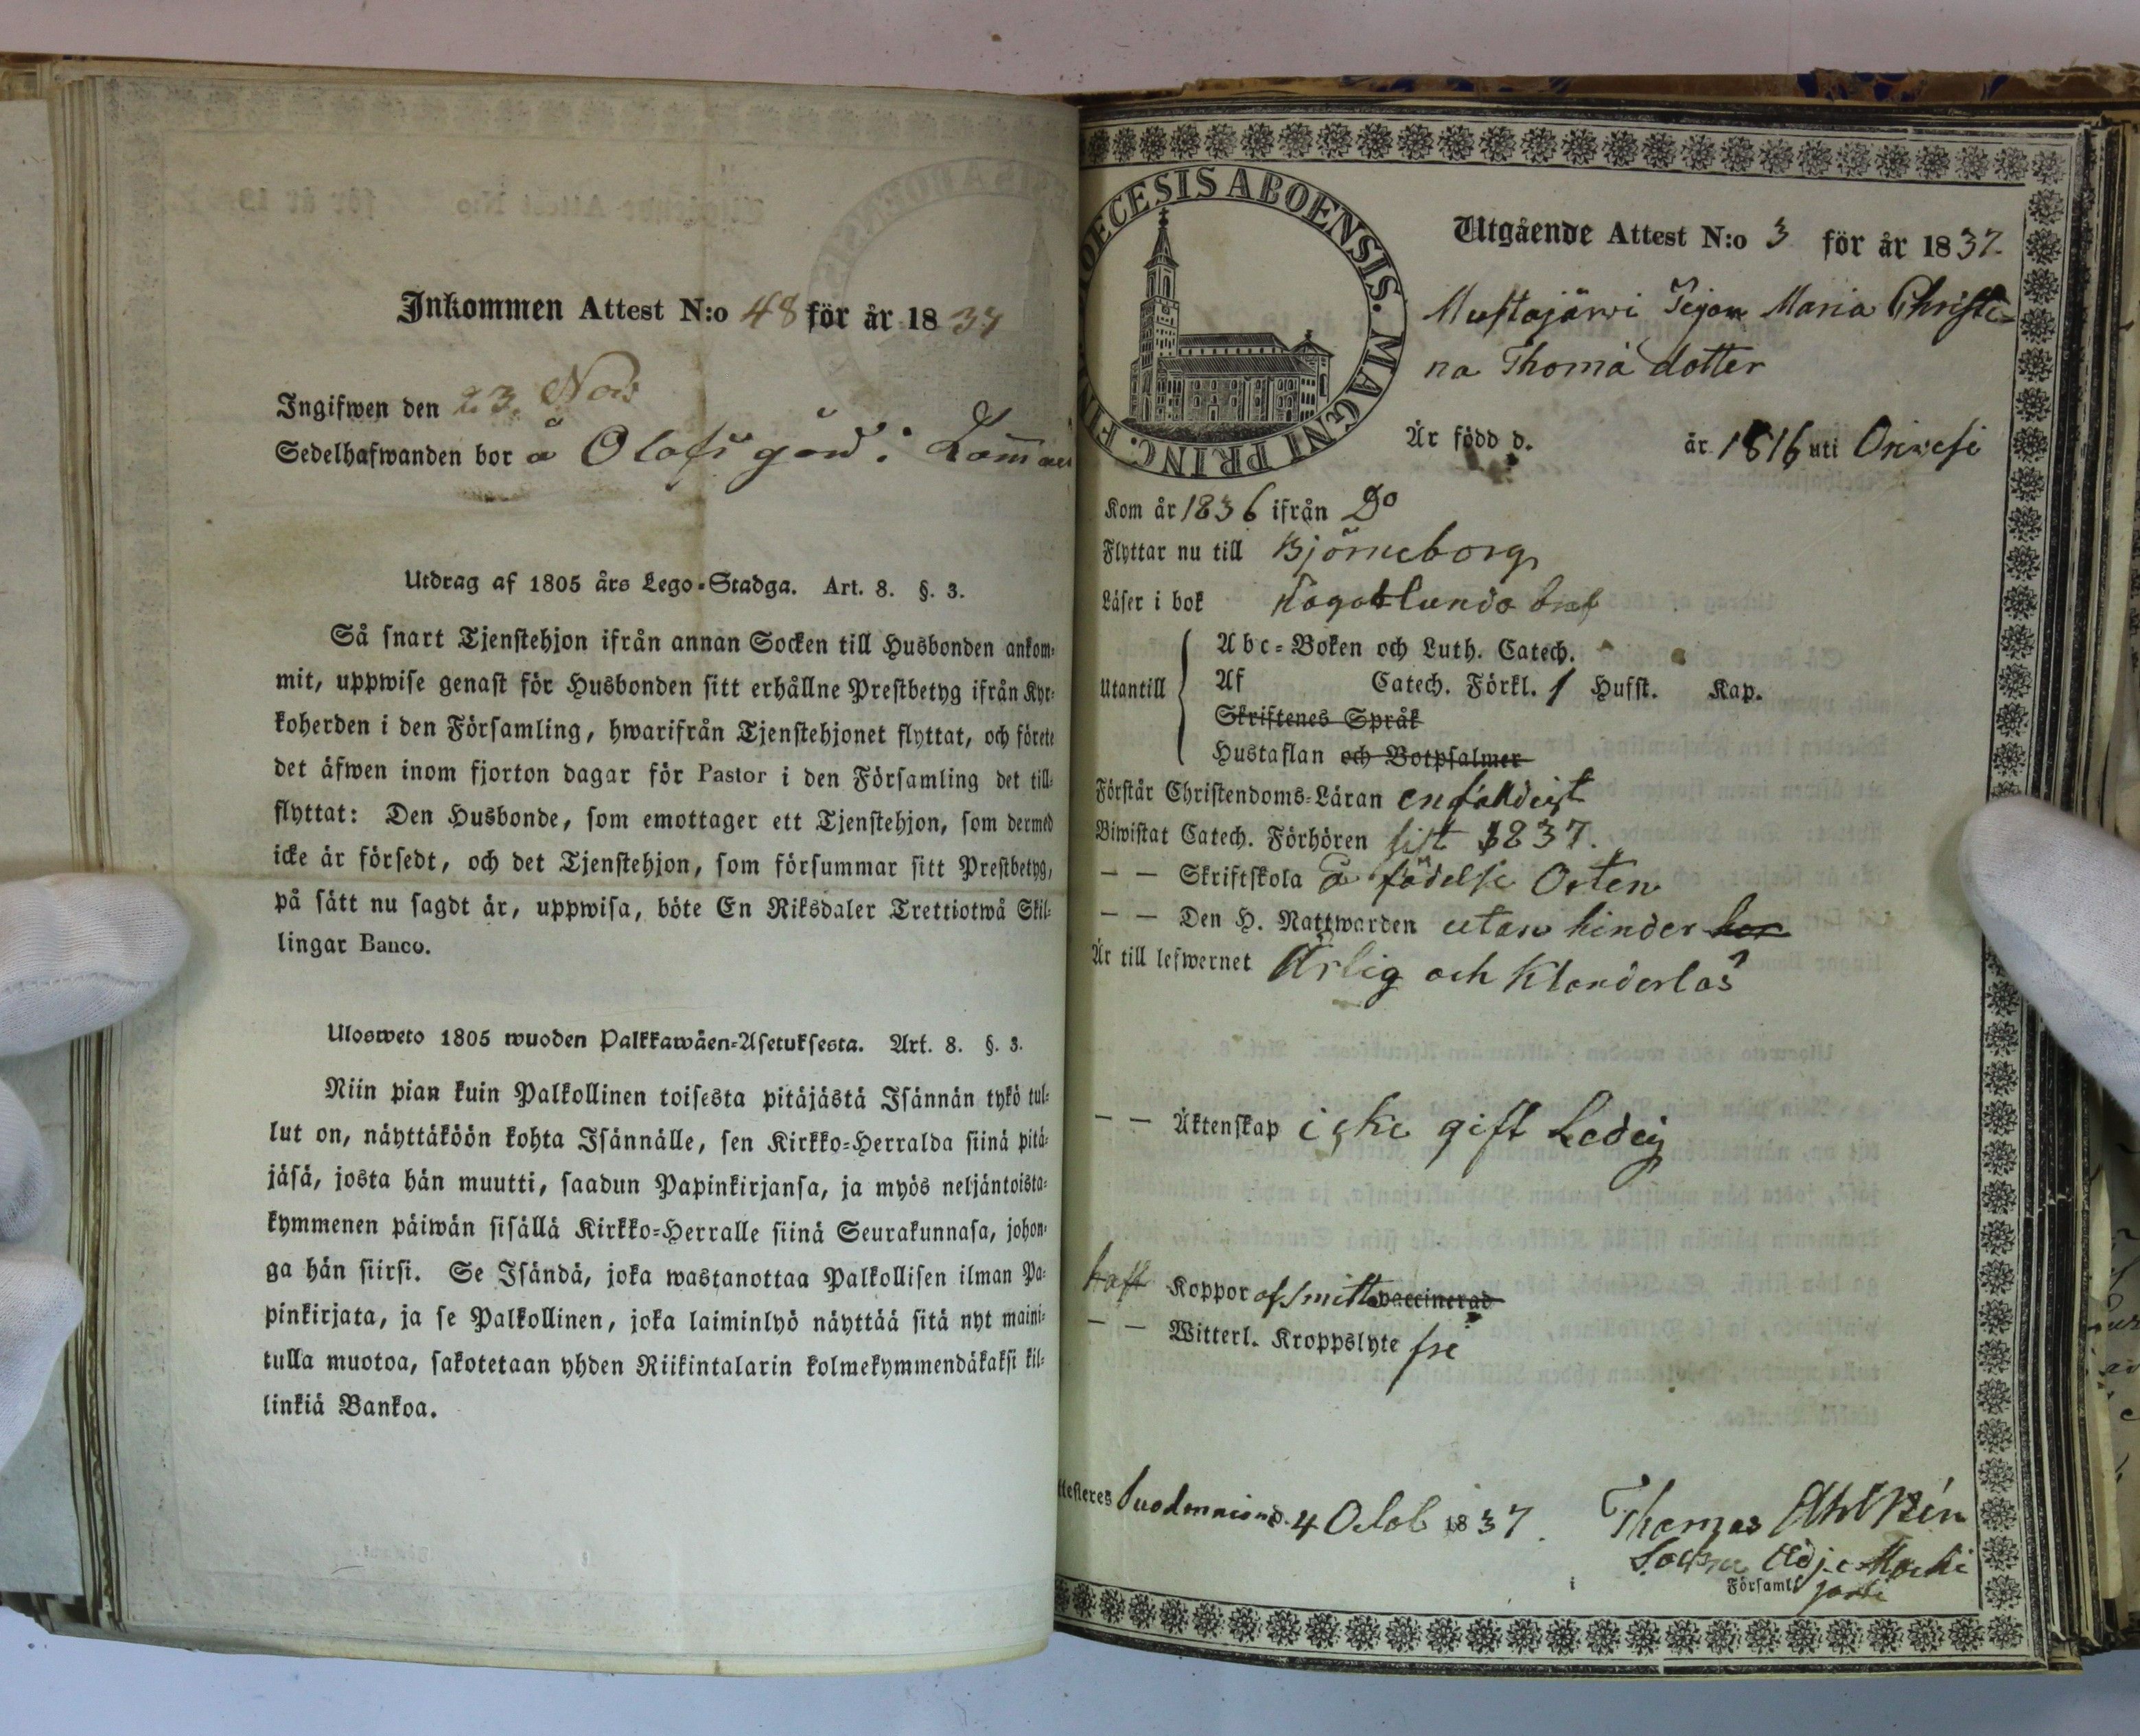 Inkommen Attest N:o 48 för år 1837
Ingifwen den 23. Nov:
Sedelhafwanden bor å Olofsgård i
Utdrag af 1805 års Lego-Stadga. Art. 8. §. 3.
Så snart Tjenstehjon ifrån annan Socken till Husbonden ankom-
mit, uppwise genast för Husbonden sitt erhållne Prestbetyg ifrån Kyr-
koherden i den Församling, hwarifrån Tjenstehjonet flyttat, och förete
det äfwen inom fjorton dagar för Pastor i den Församling det till-
flyttat: Den Husbonde, som emottager ett Tjenstehjon, som dermed
icke är försedt, och det Tjenstehjon, som försummar sitt Prestbetyg,
på sätt nu sagdt är, uppwisa, böte En Riksdaler Trettiotwå Skil-
lingar Banco.
Ulosweto 1805 wuoden Palkkawäen-Asetuksesta. Art. 8. §. 3.
Niin pian kuin Palkollinen toisesta pitäjästä Isännän tykö tul-
lut on, näyttäköön kohta Isännälle, sen Kirkko-Herralda siinä pitä-
jäsä, josta hän muutti, saadun Papinkirjansa, ja myös neljäntoista-
kymmenen päiwän sisällä Kirkko-Herralle siinä Seurakunnasa, johon-
ga hän siirsi. Se Isändä, joka wastanottaa Palkollisen ilman Pa-
pinkirjata, ja se Palkollinen, joka laiminlyö näyttää sitä nyt maini-
tulla muotoa, sakotetaan yhden Riikintalarin kolmekymmendäkaksi kil-
linkiä Bankoa.
DIOECESIS ABOENSIS. MAGNI PRINC. FIN
Utgående Attest N:o 3 för år 1837.
Mustajärwi Pigan Maria Christi-
na Thomä dotter
Är född d. år 1816 uti Oriwesi
Kom år 1836 ifrån Do
Flyttar nu till Björneborg
Läser i bok
Utantill
Abc-Boken och Luth. Catech.
Af Catech. Förkl. 1 Hufst. Kap.
Skriftenes Språk
Hustaflan och Botpsalmer
Förstår Christendoms-Läran enfaldigt
Biwistat Catech. Förhören sist 1837.
— — Skriftskola å födelse Orten
— — Den H. Nattwarden utan hinder her
Är till lefwernet Ärlig och Klanderlös
— — Äktenskap icke gift Ledig
haft Koppor af smitta vaccinerad
— — Witterl. Kroppslyte fri
ttesteres Suodenniemi d. 4 Octob 1837.
Thomas
i Församl.